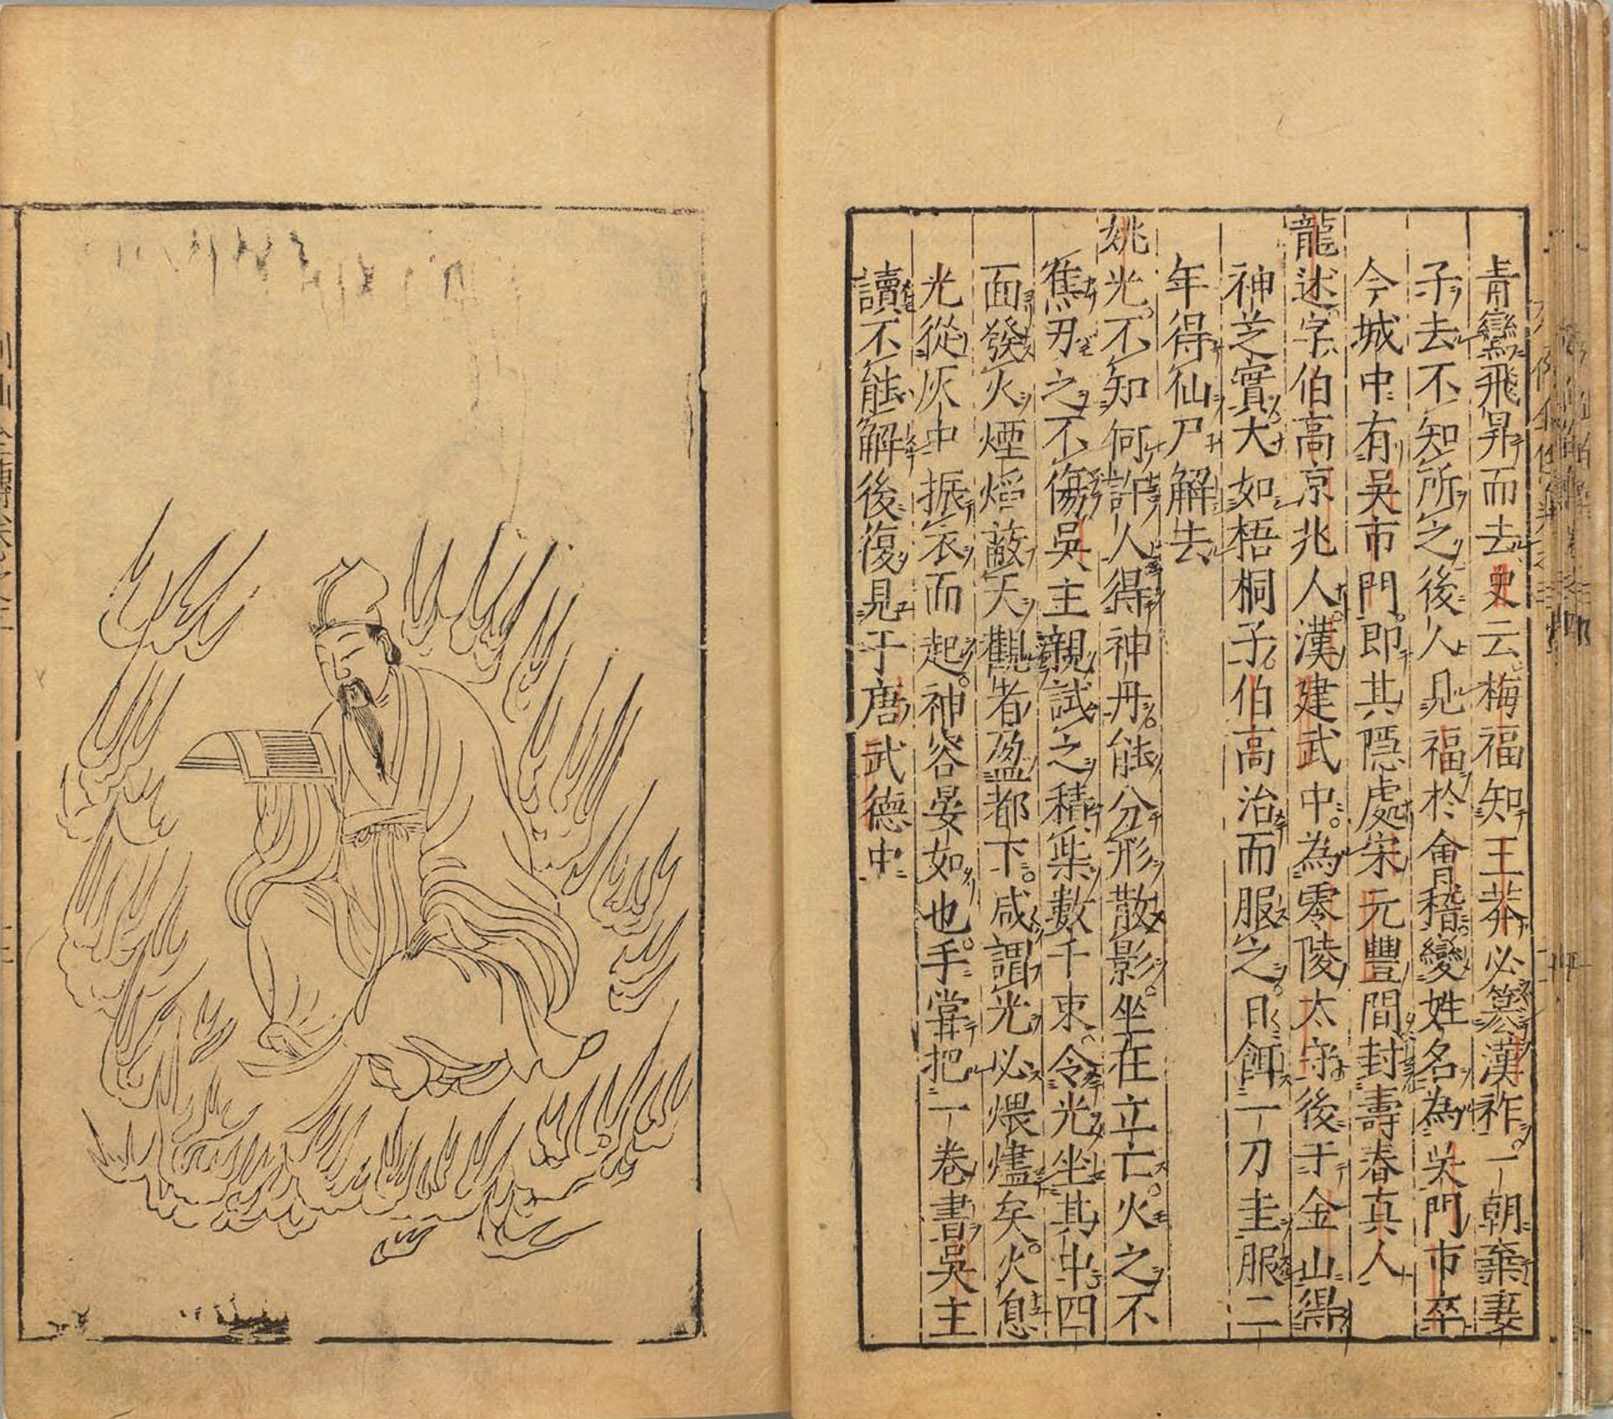 青鸞飛昇而去史云梅福知王莽必篡漢祚一朝棄妻
子去不知所之後人見福於會稽變姓名為吴門市卒
今城中有吳市門即其隱處宋元豐間封壽春真人
龍述字伯高京兆人漢建武中為零陵太守後于金山得
神芝實大如梧桐子伯高治而服之日餌一刀圭服二
年得仙尸解去
姚光不知何許人得神丹能分形散影坐在立亡火之不
焦刃之不傷吳主親試之積柴數千束令光坐其中四
面發火煙熖蔽天觀者盈都下咸謂光必煨燼矣火息
光從灰中振衣而起神容晏如也手掌把一卷書吳主
讀不能解後復見于唐武德中